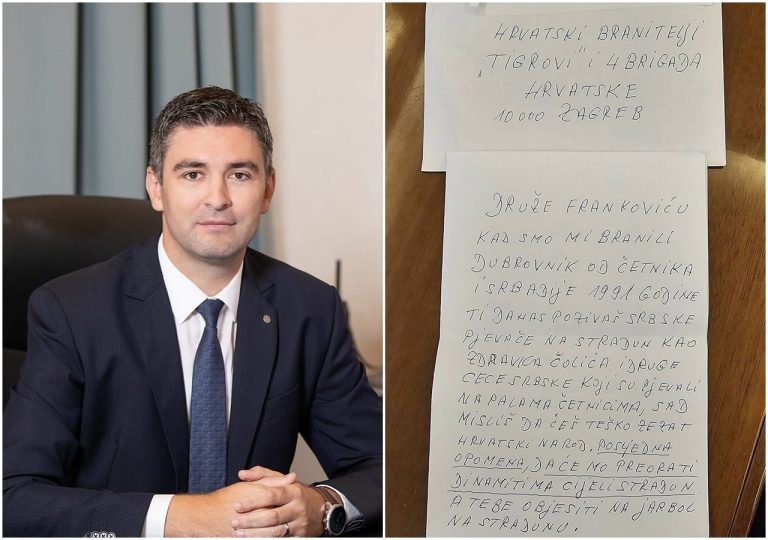 HRVATSKI BRANITELJI
„TIGROVI“ I 4 BRIGADA
HRVATSKE
10 000 ZAGREB
DRUŽE FRANKOVIĆU
KAD SMO MI BRANILI
DUBROVNIK OD ČETNIKA
I SRBADIJE 1991 GODINE
TI DANAS POZIVAŠ SRBSKE
PJEVAČE NA STRADUN KAO
ZDRAVKA ČOLIĆA I DRUGE
CECE SRBSKE KOJI SU PJEVALI
NA PALAMA ČETNICIMA, SAD
MISLIŠ DA ĆEŠ TEŠKO ZEZAT
HRVATSKI NAROD, POSLJEDNA
OPOMENA, DA ĆEMO PREORATI
DINAMITIMA CIJELI STRADUN
A TEBE OBJESITI NA JARBOL
NA STRADUNU.